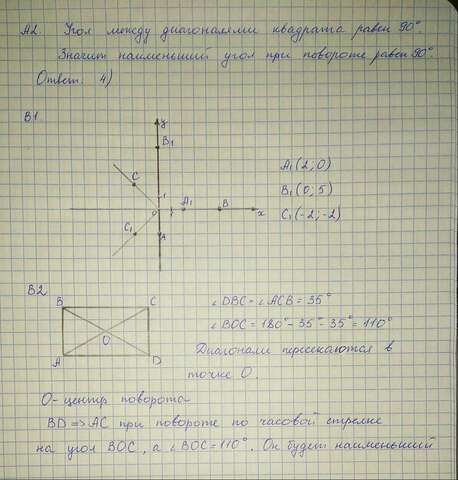 А2. Угол между диагоналями квадрата равен 90°.
Значит наименьший угол при повороте равен 90°.
Ответ: 4)
В1
y
B1
C
1
A1(2;0)
B1(0;5)
C1(-2;-2)
0
1
A1
B
x
C1
A
В2
B
C
O
A
D
∠DBC=∠ACB=35°
∠BOC=180°-35°-35°=110°
Диагонали пересекаются в
точке О.
О-центр поворота
BD=>AC при повороте по часовой стрелке
на угол BOC, а ∠BOC=110°. Он будет наименьший